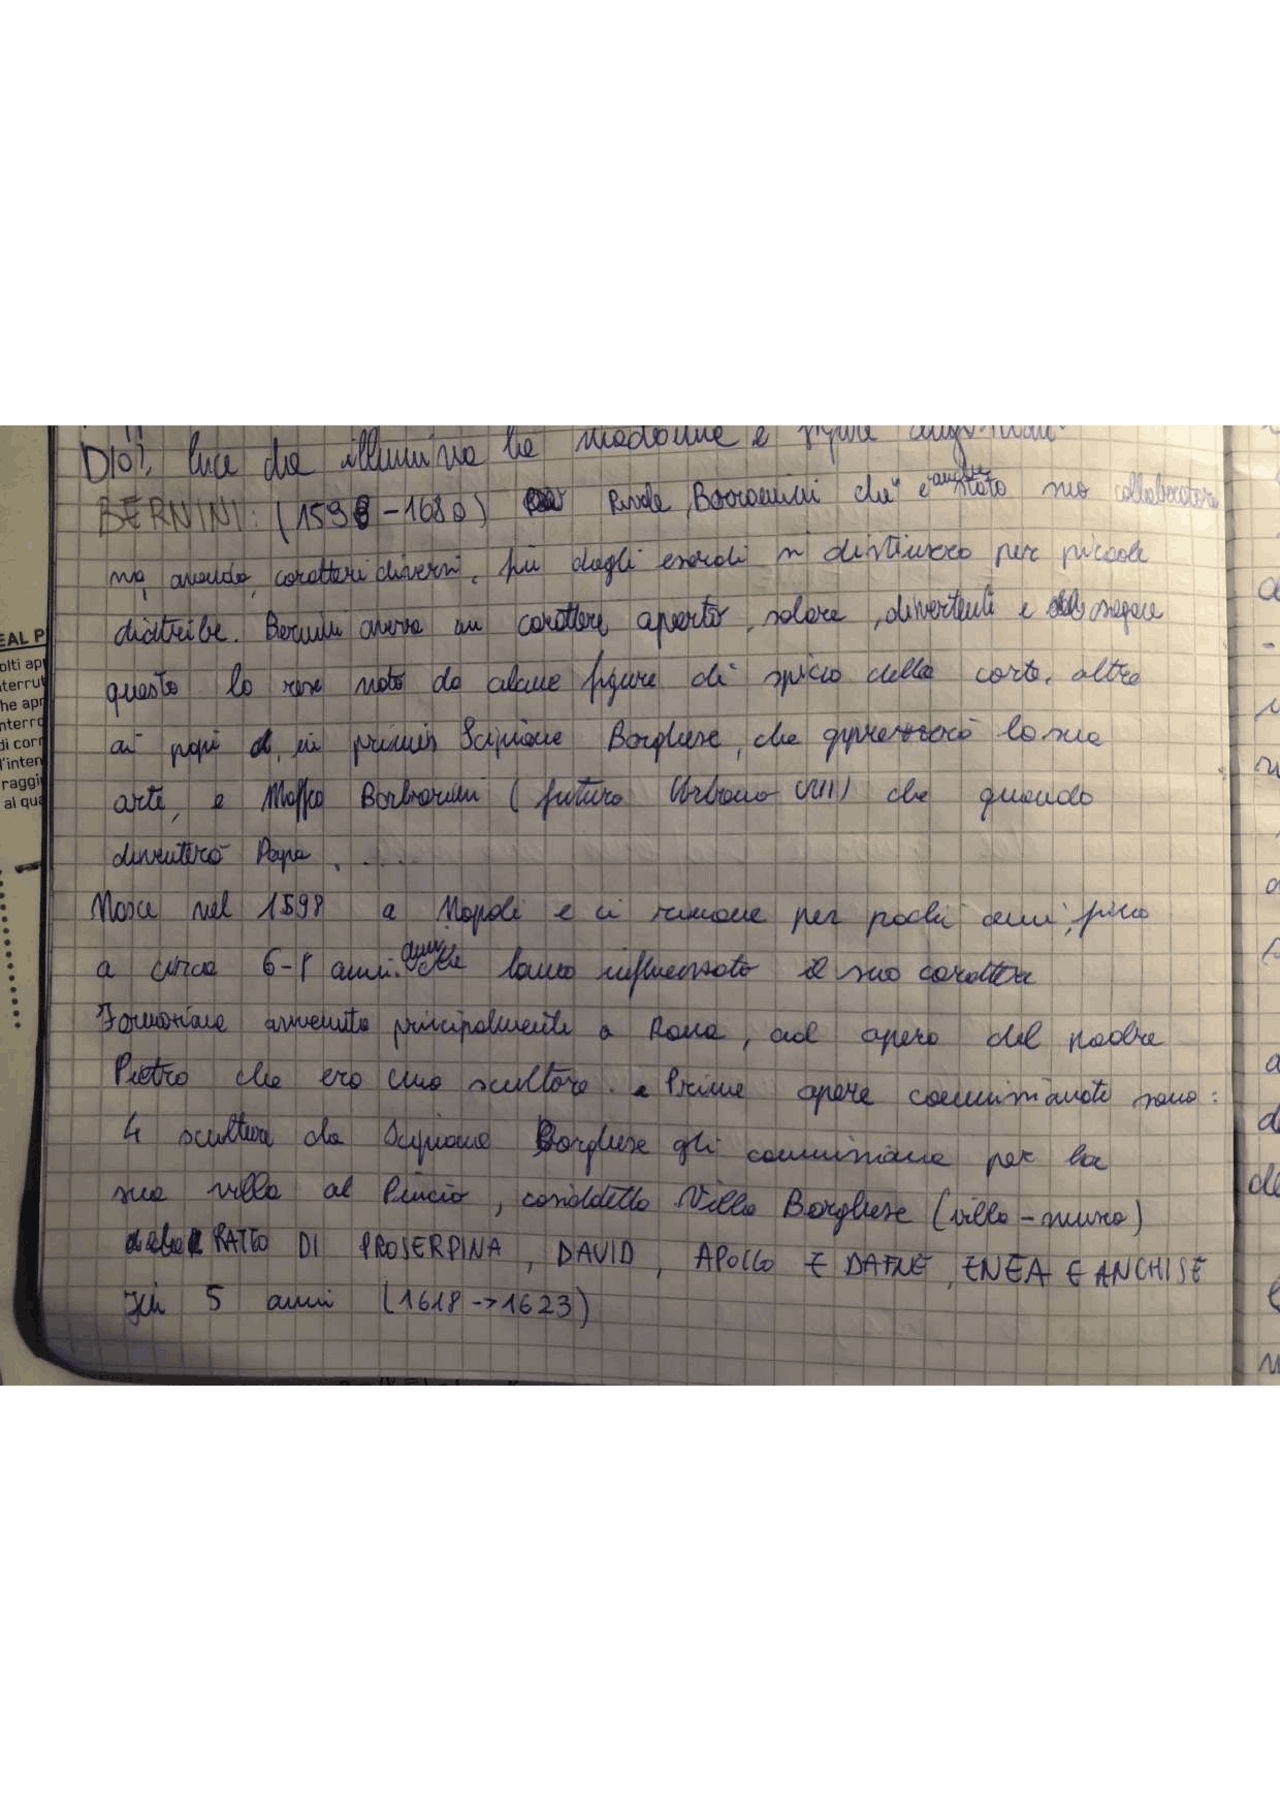 DIO?, luce che illumina la madonna e figure
BERNINI: (1598-1680) Rivale Borromini che è anche stato suo collaboratore
ma avendo caratteri diversi, fin dagli esordi si distinsero per piccole
diatribe. Bernini aveva un carattere aperto, solare, divertente e sagace
questo lo rese noto da alcune figure di spicco della corte, oltre
ai papi, in primis Scipione Borghese, che apprezzerà la sua
arte, e Maffeo Barberini (futuro Urbano VIII) che quando
diventerà Papa, ....
Nasce nel 1598 a Napoli e ci rimane per pochi anni, fino
a circa 6-8 anni. anni che hanno influenzato il suo carattere
Formazione avvenuta principalmente a Roma, ad opera del padre
Pietro che era uno scultore. Prime opere commissionate sono:
4 sculture che Scipione Borghese gli commissiona per la
sua villa al Pincio, cosiddetta Villa Borghese (villa-museo)
RATTO DI PROSERPINA, DAVID, APOLLO E DAFNE, ENEA E ANCHISE
in 5 anni (1618->1623)
EAL P
olti ap
terrut
he apr
nterro
di corr
l'inten
raggi
al qua